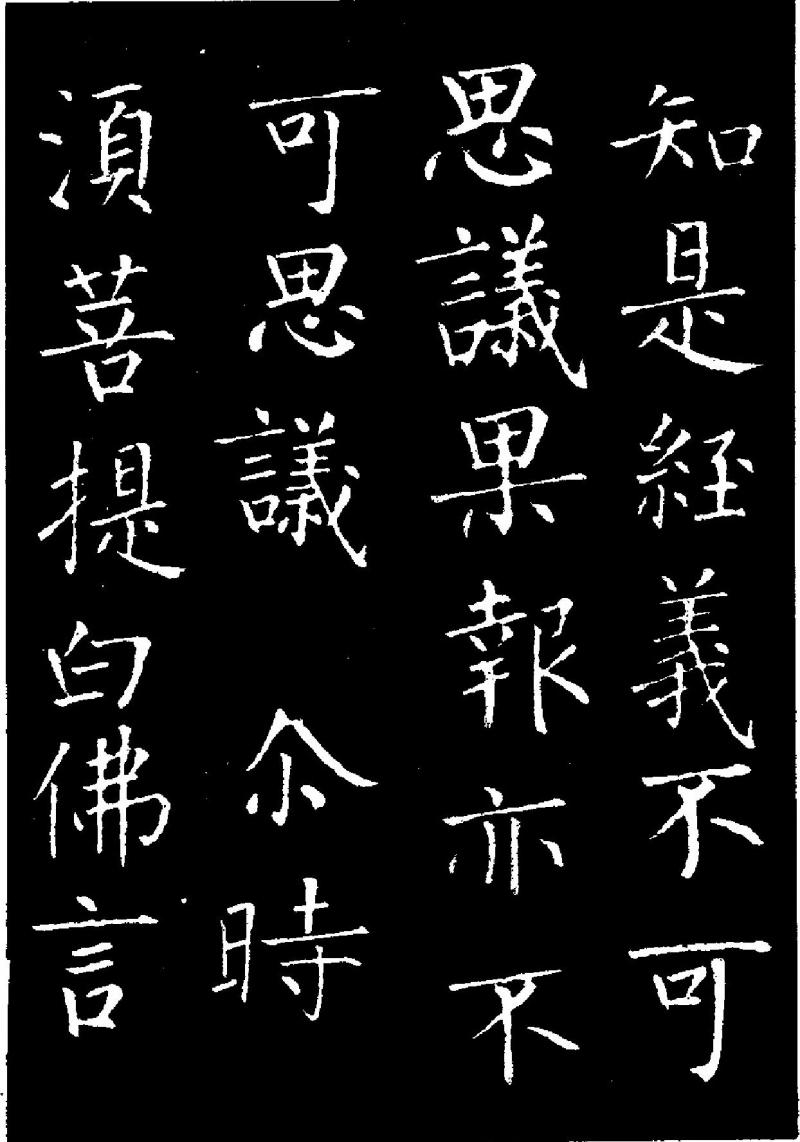 知是經義不可
思議果報亦不
可思議 尒時
湏菩提白佛言